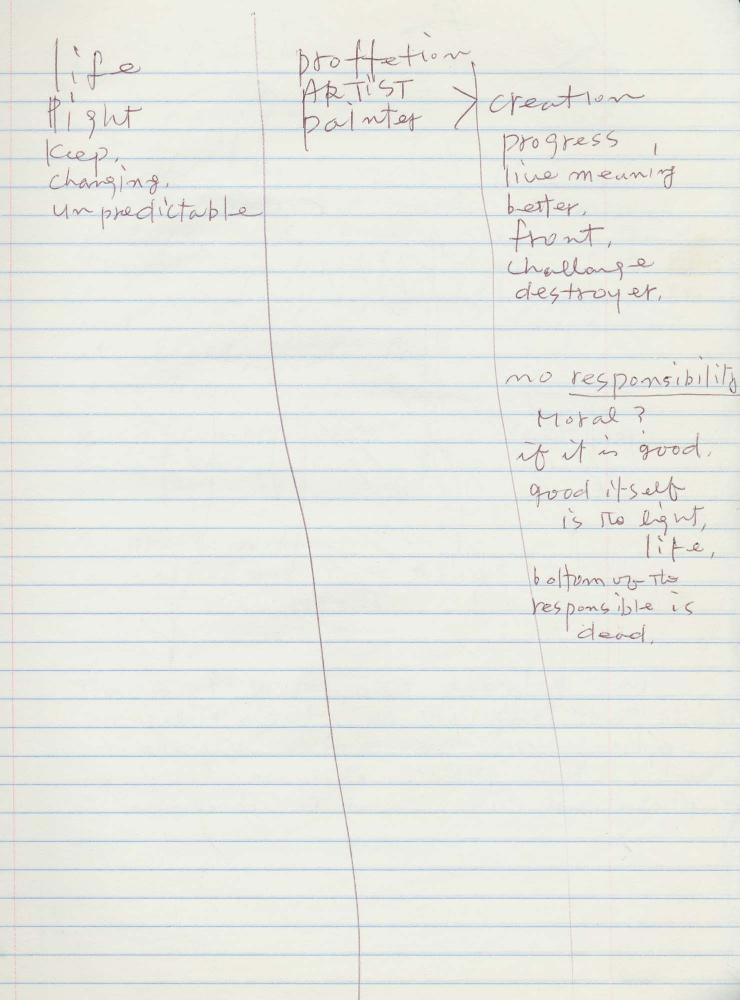 life
light
Keep,
changing,
unpredictable
proffetion,
ARTIST
painter
> creation
progress,
live meaning
better,
front,
challange
destroyer,
no responsibility
Moral?
if it is good,
good itself
is no light,
life,
bottom of the
responsible is
dead.